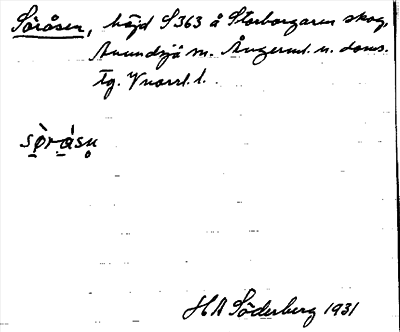 Söråsen, höjd S363 å Storborgaren skog,
Anundsjö sn. Ångerml. n. doms.
tg. Vnorrl. l.
sö̀rásn̥
H A Söderberg 1931